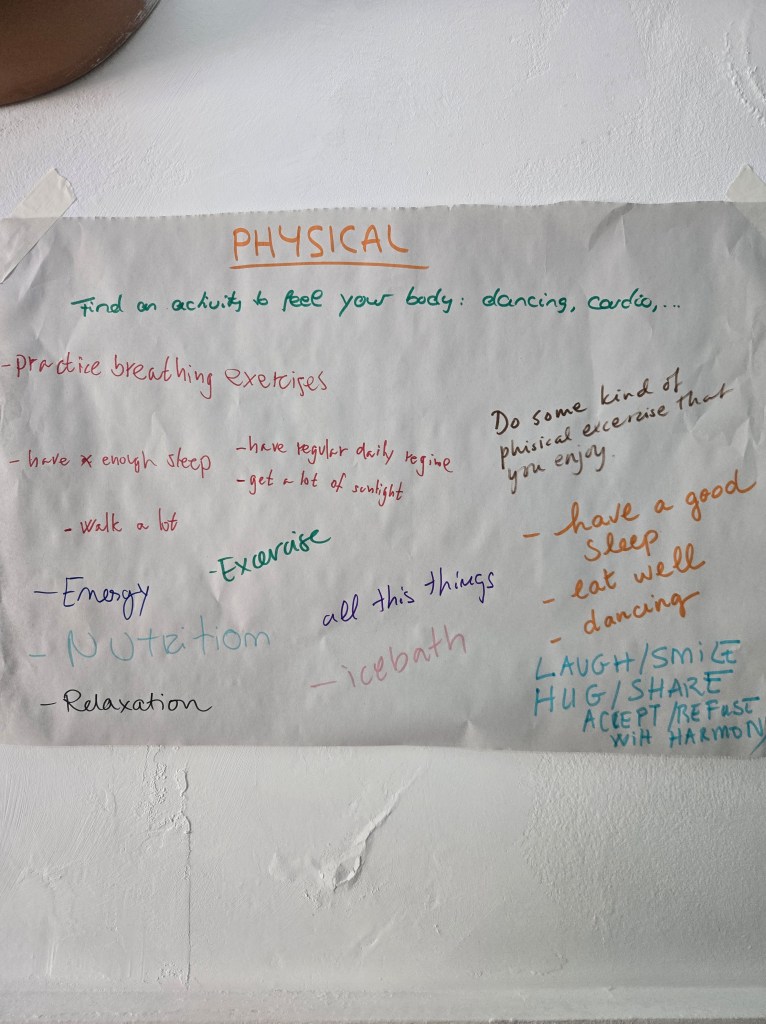 PHYSICAL
Find an activity to feel your body: dancing, cardio,...
-practice breathing exercises
- have enough sleep
-have regular daily regime
-get a lot of sunlight
- walk a lot
Do some kind of
phisical excercise that
you enjoy.
-Excercise
- Energy
all this things
- NUtRitiom
- icebath
- Relaxation
- have a good
sleep
- eat well
- dancing
LAUGH/SMiLE
HUG/SHARE
ACCEPT/REFUSE
WiH HARMONY